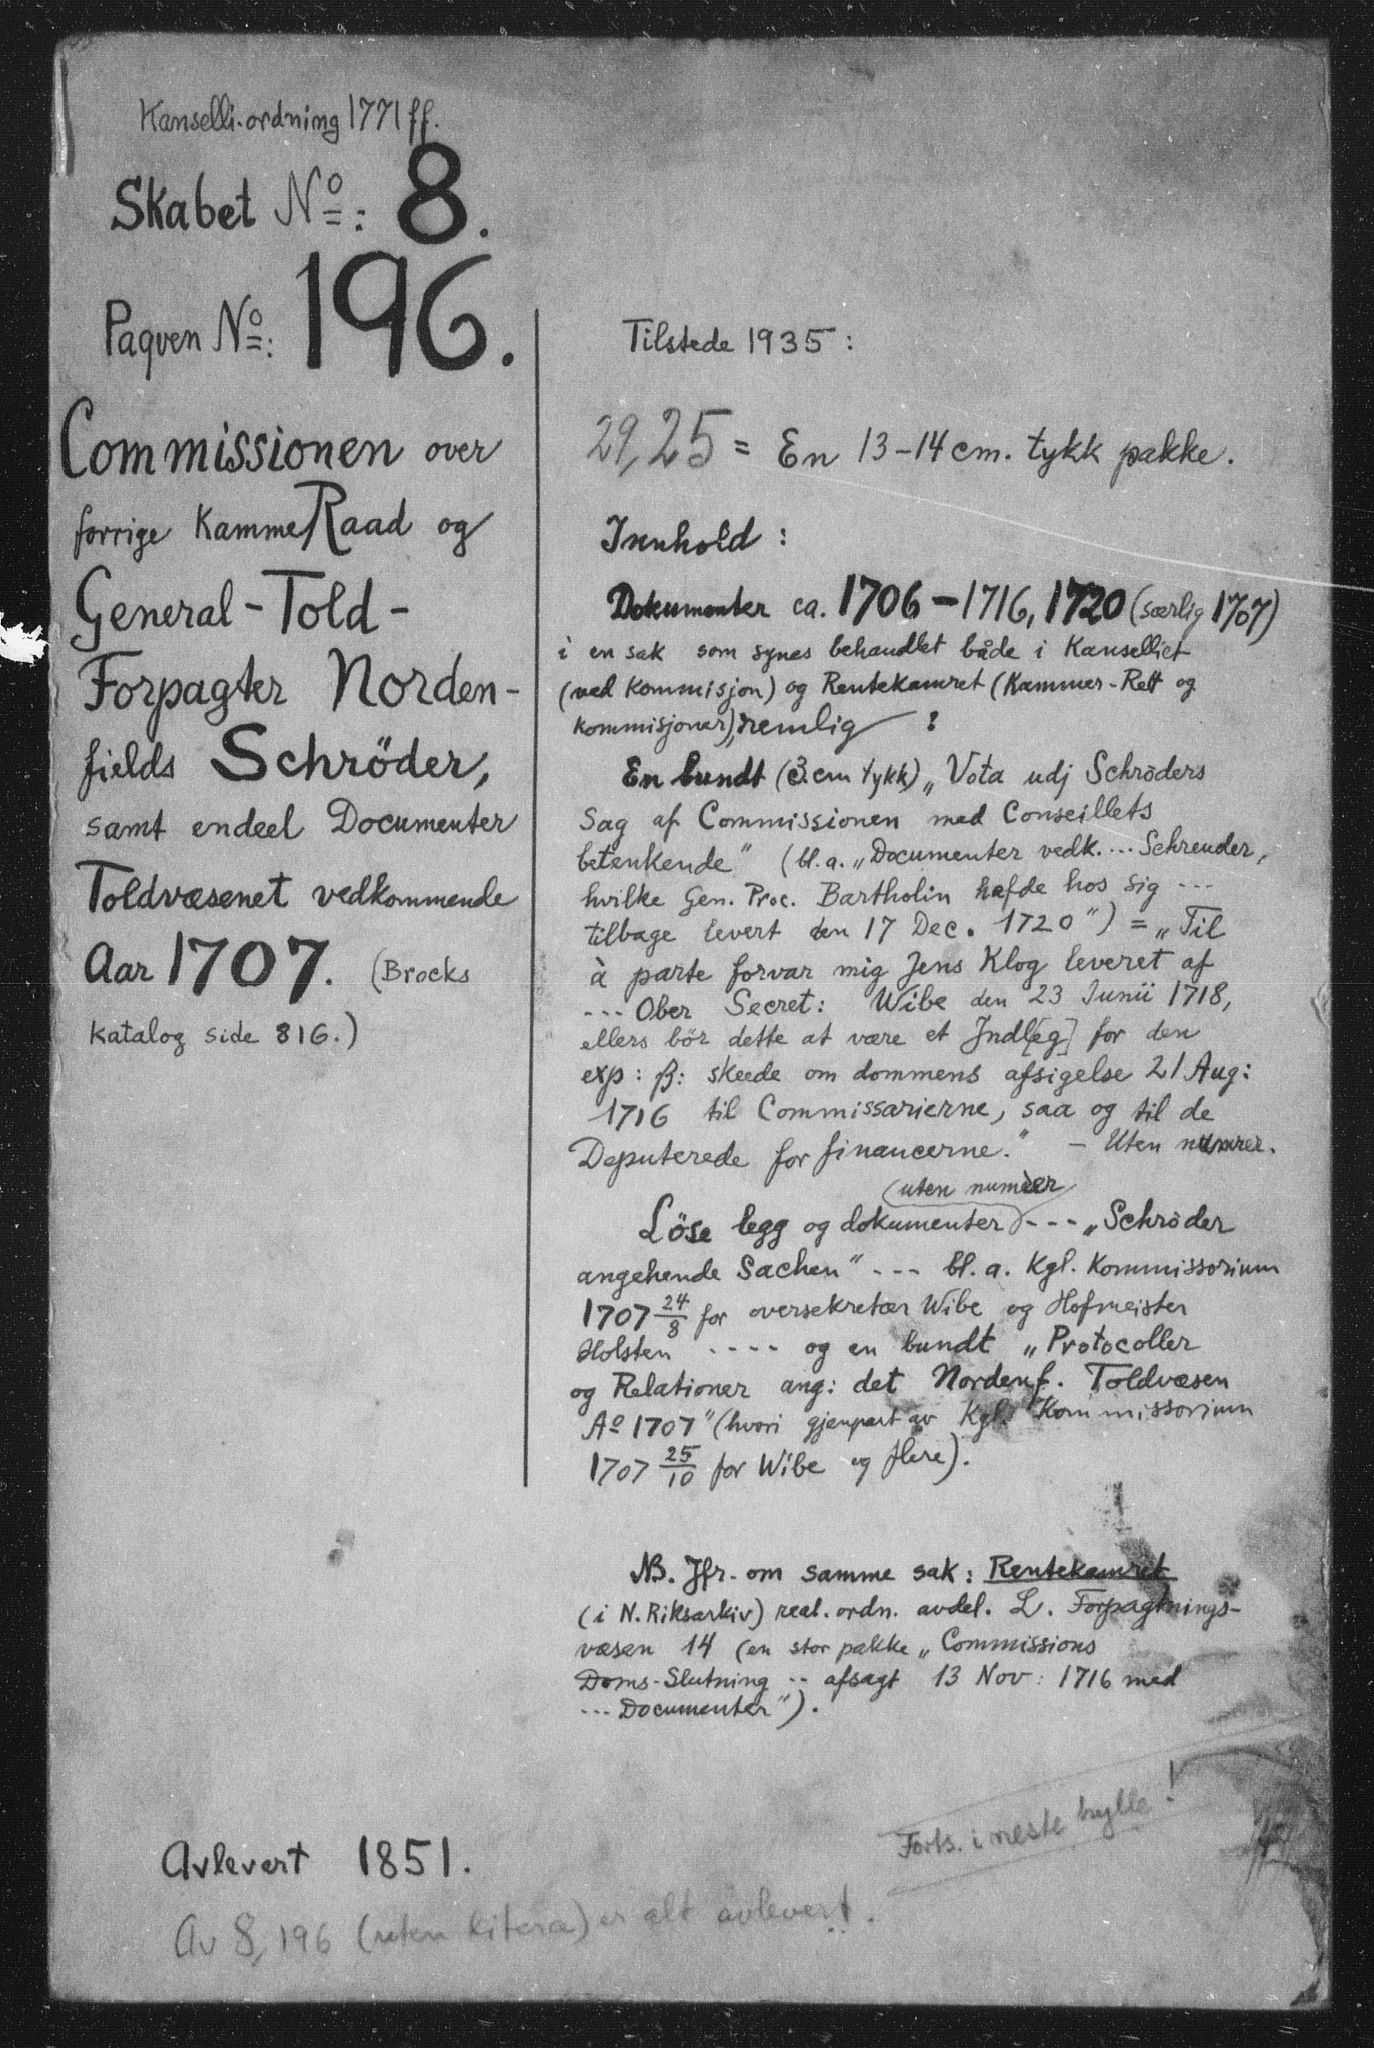 Kanselli-ordning 1771 ff.
Skabet No: 8.
Paqven No: 196.
Commissionen over
forrige KammeRaad og
General-Told-
Forpagter Norden-
fields Schröder,
samt endeel Documenter
Toldvæsenet vedkommende
Aar 1707. (Brocks
katalog side 816.)
Avlevert 1851.
Av 8, 196 (uten litera) er alt avlevert.
Tilstede 1935:
29,25 = En 13-14 cm. tykk pakke.
Innhold:
Dokumenter ca. 1706-1716, 1720 (særlig 1707)
i en sak som synes behandlet både i Kanselliet
(ved kommisjon) og Rentekamret (Kammer-Rett og
kommisjoner), nemlig:
En bundt (3 cm tykk) „Vota udj Schröders
Sag af Commissionen med Conseillets
betenkende" (bl.a. „Documenter vedk. ... Schreuder,
hvilke Gen. Proc. Bartholin hafde hos sig ---
tilbage levert den 17 Dec. 1720") = „Til
à parte forvar mig Jens Klog leveret af
--- Ober Secret: Wibe den 23 Junii 1718,
ellers bör dette at være et Indl[eg] for den
exp: ß: skeede om dommens afsigelse 21 Aug:
1716 til Commissarierne, saa og til de
Deputerede for financerne." - Uten numrer.
(uten numrer
Löse legg og dokumenter) --- „Schröder
angehende Sachen" --- bl. a. Kgl. Kommissorium
1707 24/8 for oversekretær Wibe og Hofmeister
Holsten ---- og en bundt „Protocoller
og Relationer ang: det Nordenf. Toldvæsen
Ao 1707" (hvori gjenpart av Kgl. Kommissorium
1707 25/10 for Wibe og flere).
NB. Jfr. om samme sak: Rentekamret
(i N. Riksarkiv) real. ordn. avdel. L. Forpagtnings-
væsen 14 (en stor pakke „Commissions
Doms-Slutning -- afsagt 13 Nov: 1716 med
--- Documenter").
Forts. i neste hylle!